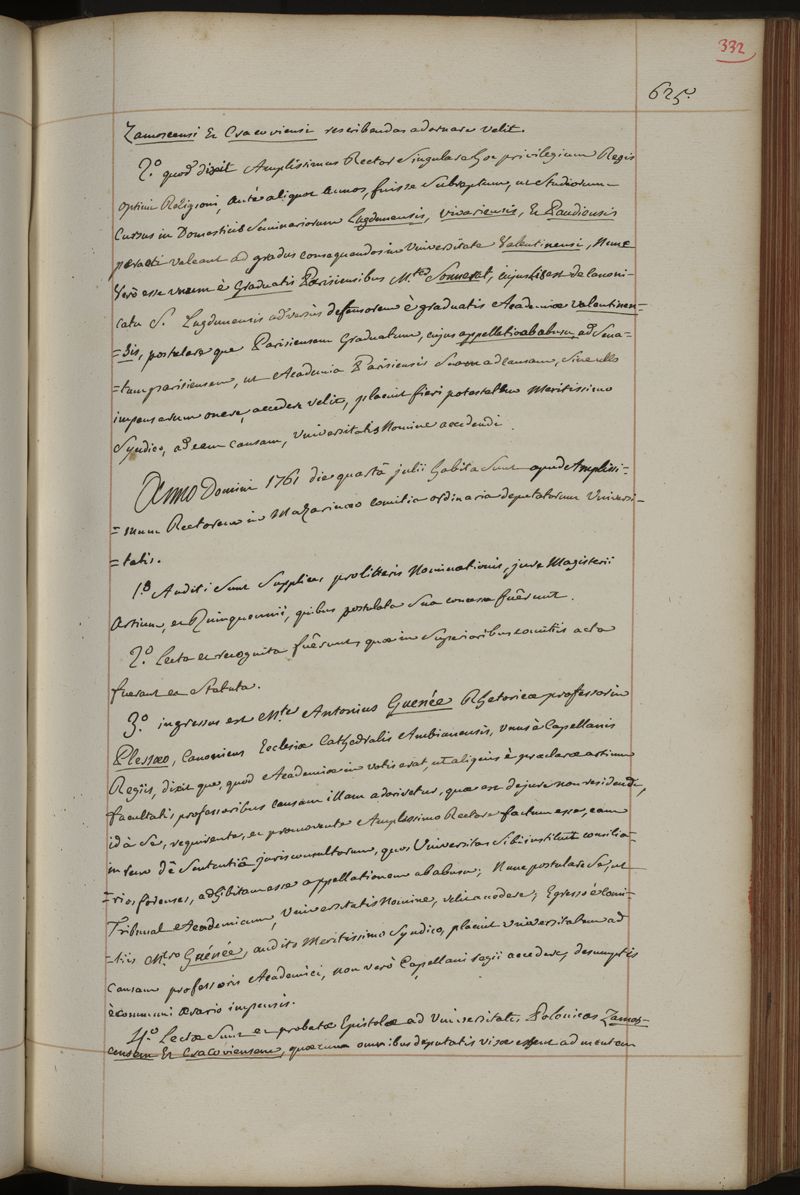 332
625.
Zamoscensi Et Cracoviensi rescribendas adornare velit.
2.° quod dixit Amplissimus Rector singulare hoc privilegium Regis
optimi Religioni, ante aliquot annos, fuisse subreptum, ut studiorum
Cursus in Domesticis Seminariorum Lugdunensis, vivariensis, Et
peracti valeant ad gradus consequendos in Universitate Valentinensi, Nunc
Verò esse unum è Graduatis Parisiensibus M.tro, cujus lis est de canoni-
catu S. Lugdunensis adversùs defensorem è graduatis Academiæ valentinen-
=sis, postulare que Parisiensem Graduatum, cujus appellatio ab abusu, ad Sena-
=tum parisiensem, ut Academia Parisiensis suam ad causam, sine ullo
impensarum onere, accedere velit, placuit fieri potestatem Meritissimo
Syndico, ad eam causam, Universitatis Nomine accedendi.
Anno Domini 1761 die quartâ julii habita sunt apud Amplissi-
=mum Rectorem in Mazarinæo comitia ordinaria deputatorum Universi-
=tatis.
1.° Auditi sunt supplices pro litteris Nominationis, jure Magisterii
Artium, et Quinquennii, quibus postulata sua concessa fuêrunt.
2.° Lecta et recognita fuêrunt, quæ in superioribus comitiis acta
fuerant et statuta.
3.° ingressus est M.ter Antonius Guenée Rhetoricæ professor in
Plessæo, Canonicus Ecclesiæ Cathedralis Ambianensis, unus à Capellanis
Regiis, dixit que, quod Academiæ in votis erat, ut aliquis è præclarâ artium
facultati, professoribus causam illam adoriretur, quæ est de jure non residendi,
id à se, requirente, et promovente Amplissimo Rectore factum esse, eam
in rem de sententiâ jurisconsultorum, quos Universitas sibi instituit consilia-
=rios forenses, adhibitam esse appellationem ab abusu; Nunc postulare se, ut
Tribunal Academicum, Universitatis Nomine, velit accedere; Egresso è comi-
=tiis M.tro Guénée, audito Meritissimo Syndico, placuit universitatem ad
causam professoris Academici, non verò Capellani regii accedere, desumptis
è communi ærario impensis.
4.° Lectæ sunt et probatæ Epistolæ ad Universitates Polonicas Zamos-
censem Et Cracoviensem, quæ cum omnibus deputatis visæ essent ad mentem